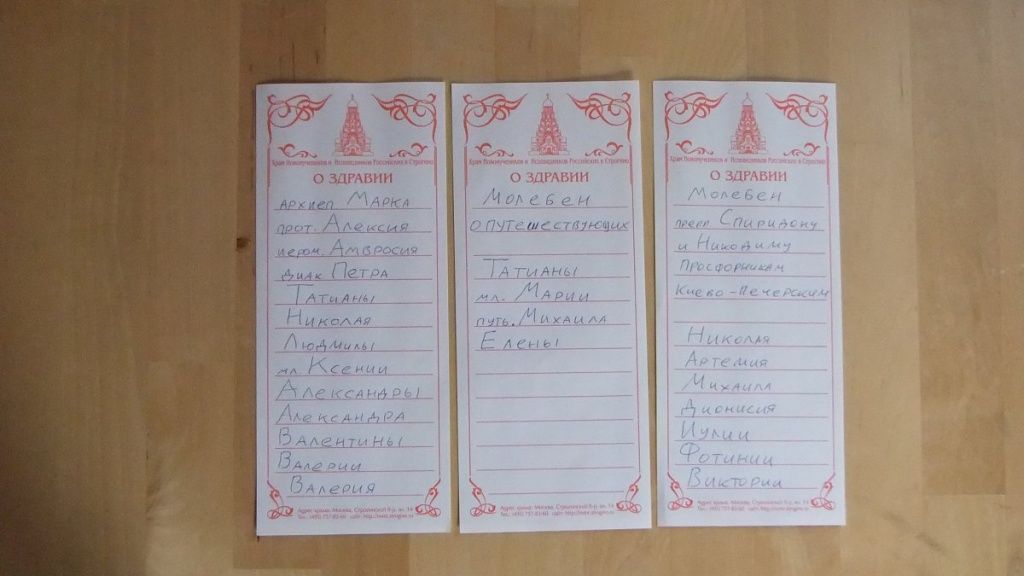 Храм Новомучеников и Исповедников Российских в Строгино
О ЗДРАВИИ
архиеп Марка
прот. Алексия
иером. Амвросия
диак Петра
Татианы
Николая
Людмилы
мл. Ксении
Александры
Александра
Валентины
Валерии
Валерия
Адрес храма: Москва, Строгинский б-р, вл. 14
Тел.: (495) 757-83-60 сайт: http://www.
Храм Новомучеников и Исповедников Российских в Строгино
О ЗДРАВИИ
Молебен
о путешествующих
Татианы
мл. Марии
путь. Михаила
Елены
Адрес храма: Москва, Строгинский б-р, вл. 14
Тел.: (495) 757-83-60 сайт: http://www.
Храм Новомучеников и Исповедников Российских в Строгино
О ЗДРАВИИ
Молебен
преп Спиридону
и Никодиму
просфорникам
Киево-Печерским
Николая
Артемия
Михаила
Дионисия
Иулии
Фотинии
Виктории
Адрес храма: Москва, Строгинский б-р, вл. 14
Тел.: (495) 757-83-60 сайт: http://www.